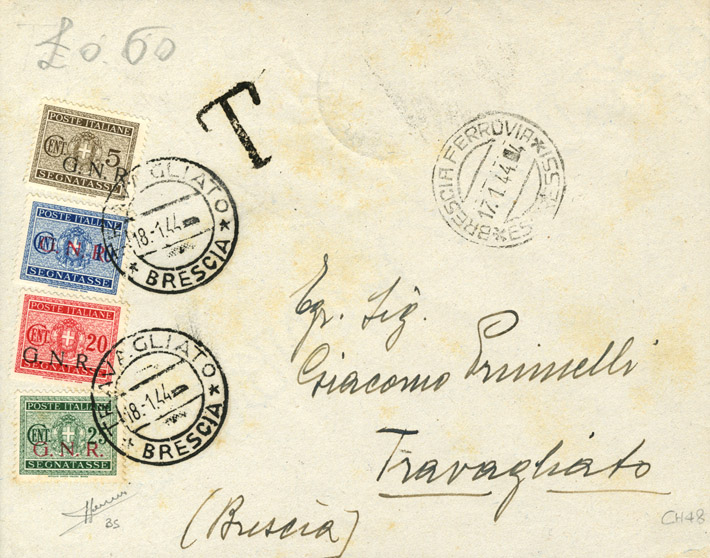 £0.60
T
POSTE ITALIANE
CENT. 5
G.N.R.
SEGNATASSE
POSTE ITALIANE
CENT. 10
G.N.R.
SEGNATASSE
POSTE ITALIANE
CENT. 20
G.N.R.
SEGNATASSE
POSTE ITALIANE
CENT. 25
G.N.R.
SEGNATASSE
TRAVAGLIATO
18.-1.44
* BRESCIA *
TRAVAGLIATO
18.-1.44
* BRESCIA *
BRESCIA FERROVIA
17.1.44
Egr. Sig.
Giacomo
Travagliato
(Brescia)
BS
CH48